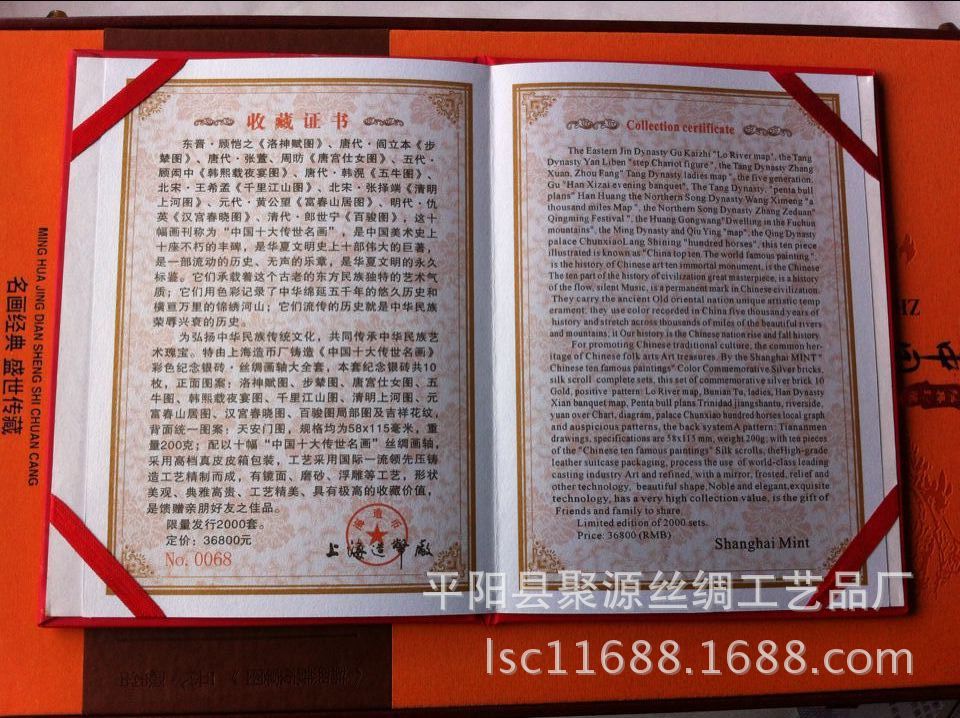 收藏证书
东晋·顾恺之《洛神赋图》、唐代·阎立本《步
辇图》、唐代·张萱、周昉《唐宫仕女图》、五代·
顾闳中《韩熙载夜宴图》、唐代·韩滉《五牛图》、
北宋·王希孟《千里江山图》、北宋·张择端《清明
上河图》、元代·黄公望《富春山居图》、明代·仇
英《汉宫春晓图》、清代·郎世宁《百骏图》，这十
幅画刊称为“中国十大传世名画”，是中国美术史上
十座不朽的丰碑，是华夏文明史上十部伟大的巨著，
是一部流动的历史、无声的乐章，是华夏文明的永久
标鉴。它们承载着这个古老的东方民族独特的艺术气
质；它们用色彩记录了中华绵延五千年的悠久历史和
横亘万里的锦绣河山；它们流传的历史就是中华民族
荣辱兴衰的历史。
为弘扬中华民族传统文化，共同传承中华民族艺
术瑰宝。特由上海造币厂铸造《中国十大传世名画》
彩色纪念银砖·丝绸画轴大全套，本套纪念银砖共10
枚，正面图案：洛神赋图、步辇图、唐宫仕女图、五
牛图、韩熙载夜宴图、千里江山图、清明上河图、元
富春山居图、汉宫春晓图、百骏图局部图及吉祥花纹，
背面统一图案：天安门图，规格均为58x115毫米，重
量200克；配以十幅“中国十大传世名画”丝绸画轴，
采用高档真皮皮箱包装，工艺采用国际一流领先压铸
造工艺精制而成，有镜面、磨砂、浮雕等工艺，形状
美观、典雅高贵、工艺精美、具有极高的收藏价值，
是馈赠亲朋好友之佳品。
限量发行2000套。
定价：36800元
No. 0068
上海造币厂
Collection certificate
The Eastern Jin Dynasty Gu Kaizhi "Lo River map", the Tang
Dynasty Yan Liben "step Chariot figure", the Tang Dynasty Zhang
Xuan, Zhou Fang" Tang Dynasty ladies map", the five generation,
Gu "Han Xizai evening banquet", The Tang Dynasty, "penta bull
plans" Han Huang the Northern Song Dynasty Wang Ximeng "a
thousand miles Map", the Northern Song Dynasty Zhang Zeduan"
Qingming Festival", the Huang Gongwang"Dwelling in the Fuchun
mountains", the Ming Dynasty and Qiu Ying "map", the Qing Dynasty
palace ChunxiaoLang Shining "hundred horses", this ten piece
illustrated is known as "China top ten. The world famous painting",
is the history of Chinese art ten immortal monument, is the Chinese
The ten part of the history of civilization great masterpiece, is a history
of the flow, silent Music, is a permanent mark in Chinese civilization.
They carry the ancient Old oriental nation unique artistic temp
erament; they use color recorded in China five thousand years of
history and stretch across thousands of miles of the beautiful rivers
and mountains; it Our history is the Chinese nation rise and fall history.
For promoting Chinese traditional culture, the common her-
itage of Chinese folk arts Art treasures. By the Shanghai MINT "
Chinese ten famous paintings" Color Commemorative Silver bricks,
silk scroll complete sets, this set of commemorative silver brick 10
Gold, positive pattern: Lo River map, Bunian Tu, ladies, Han Dynasty
Xian banquet map, Penta bull plans Trinidad jiangshantu, riverside,
yuan over Chart, diagram, palace Chunxiao hundred horses local graph
and auspicious patterns, the back systemA pattern: Tiananmen
drawings, specifications are 58x115 mm, weight 200g, with ten pieces
of the "Chinese ten famous paintings" Silk scrolls, theHigh-grade
leather suitcase packaging, process the use of world-class leading
casting industry Art and refined, with a mirror, frosted, relief and
other technology, beautiful shape,Noble and elegant,exquisite
technology, has a very high collection value, is the gift of
Friends and family to share.
Limited edition of 2000 sets.
Price: 36800 (RMB)
Shanghai Mint
MING HUA JING DIAN SHENG SHI CHUAN CANG
名画经典 盛世传藏
平阳县聚源丝绸工艺品厂
lsc11688.1688.com